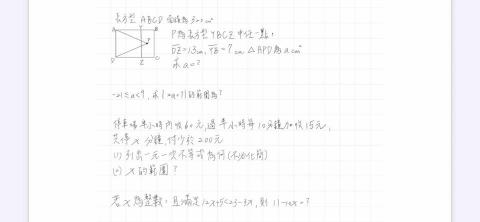 長方型 ABCD 面積為 300 cm²
A Y B
P
D Z C
P為長方型YBCZ中任一點,
DZ=13cm, YB=7cm △APD為a cm²
求a=?
-21≤a<9, 求
的範圍為?
停車場半小時內收60元,過半小時每10分鐘加收15元,
共停x分鐘,付少於200元
(1) 列出一元一次不等式為何(不必化簡)
(2) x的範圍?
若x為整數,且滿足12x+5<23-3x, 則 11-10x=?